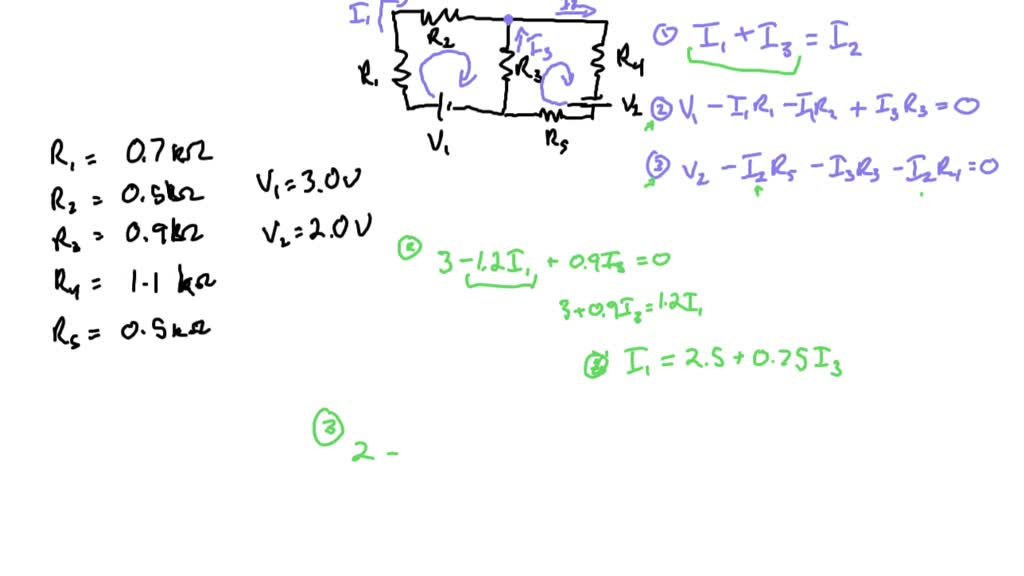 I₁
R₂
R₁
I₃
R₃
R₄
V₂
V₁
R₅
① I₁ + I₃ = I₂
② V₁ − I₁R₁ − I₁R₂ + I₃R₃ = 0
③ V₂ − I₂R₅ − I₃R₃ − I₂R₄ = 0
R₁ = 0.7kΩ
R₂ = 0.5kΩ
R₃ = 0.9kΩ
R₄ = 1.1 kΩ
R₅ = 0.5kΩ
V₁ = 3.0V
V₂ = 2.0V
② 3 − 1.2I₁ + 0.9I₃ = 0
3 + 0.9I₃ = 1.2I₁
I₁ = 2.5 + 0.75I₃
③
2 −